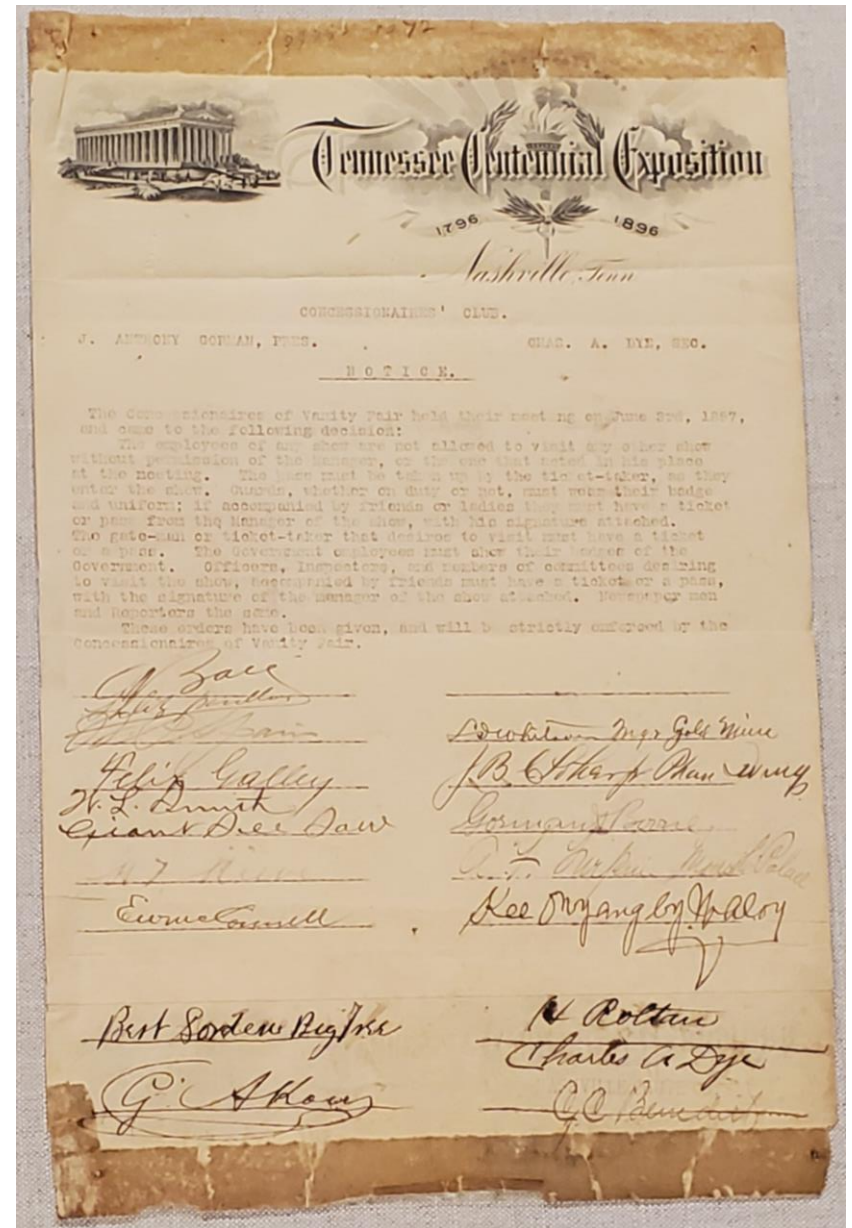 Tennessee Centennial Exposition
1796 1896
Nashville, Tenn
CONCESSIONAIRES' CLUB.
J. ANTHONY GORMAN, PRES. CHAS. A. DYE, SEC.
NOTICE.
The Concessionaires of Vanity Fair held their meeting on June 3rd, 1897,
and came to the following decision:
The employees of any show are not allowed to visit any other show
without permission of the manager, or the one that acted in his place
at the meeting. The pass must be taken up by the ticket-taker, as they
enter the show. Guards, whether on duty or not, must wear their badge
and uniform; if accompanied by friends or ladies they must have a ticket
or pass from the Manager of the show, with his signature attached.
The gate-man or ticket-taker that desires to visit must have a ticket
or a pass. The Government employees must show their badges of the
Government. Officers, Inspectors, and members of committees desiring
to visit the show, accompanied by friends must have a ticket or a pass,
with the signature of the manager of the show attached. Newspaper men
and Reporters the same.
These orders have been given, and will be strictly enforced by the
Concessionaires of Vanity Fair.
Mgr Gold Mine
Felix Galley
J. B. C.
H. L. Smith
Giant See Saw
Kee Owyang by
Bert Big Tree
H
Charles A Dye
G.
C. C. Benedict